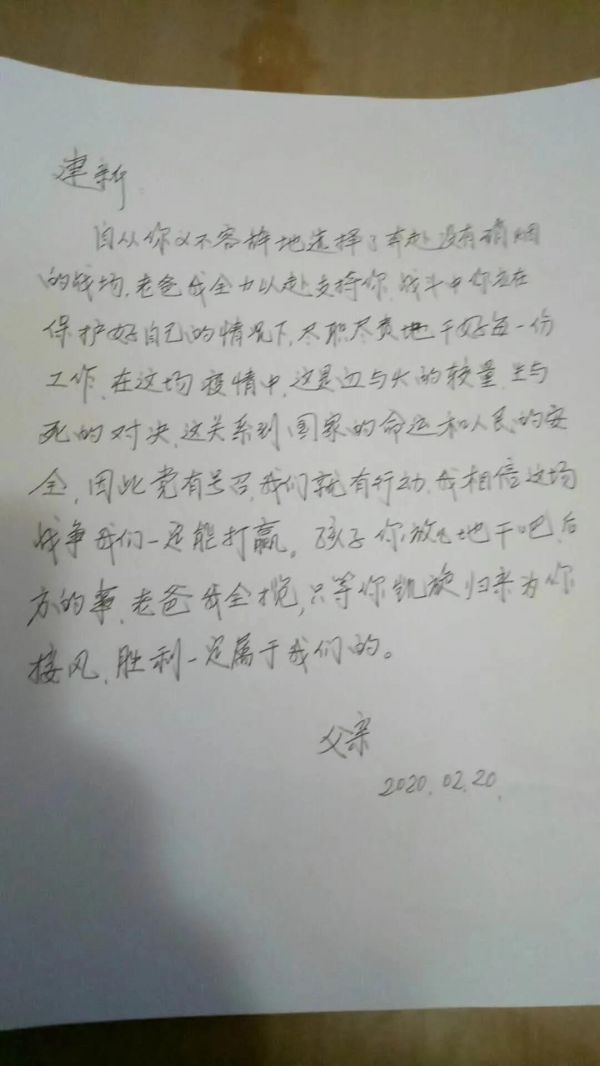 建新
自从你义不容辞地选择了奔赴没有硝烟
的战场,老爸我全力以赴支持你,战斗中你应在
保护好自己的情况下,尽职尽责地干好每一份
工作,在这场疫情中,这是血与火的较量,生与
死的对决,这关系到国家的命运和人民的安
全,因此党有号召,我们就有行动,我相信这场
战争我们一定能打赢。孩子你放心地干吧,后
方的事,老爸我全揽,只等你凯旋归来为你
接风,胜利一定属于我们的。
父亲
2020.02.20.